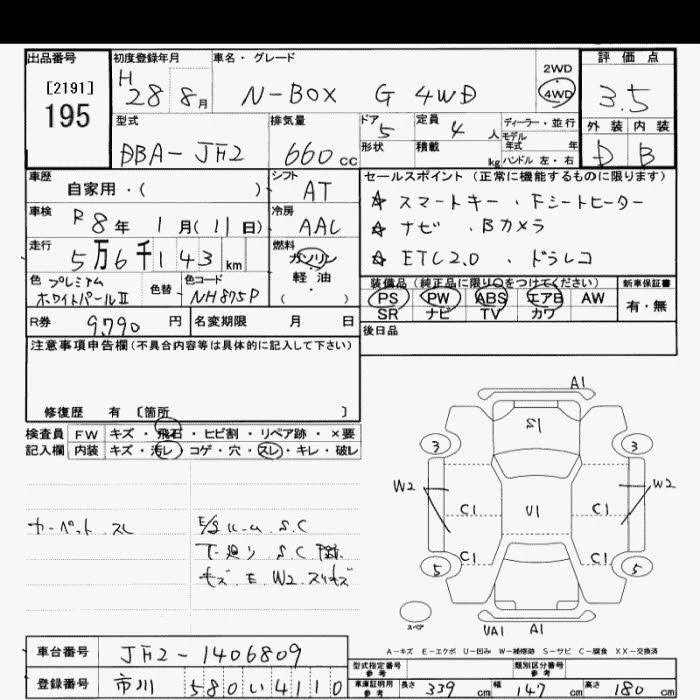 出品番号
[2191]
195
初度登録年月
H 28 8月
車名・グレード
N-BOX G 4WD
2WD
4WD
評価点
3.5
外装 内装
D B
型式
DBA-JF2
排気量
660 cc
ドア
5
形状
定員
4 人
積載
kg
ディーラー・並行
モデル
年式 年
ハンドル 左・右
車歴
自家用・( )
シフト
AT
車検
R 8年 1月(11日)
冷房
AAC
走行
5万6千143 km
燃料
ガソリン
軽・油
( ・ )
色 プレミアム
ホワイトパールII
色替
色コード
NH875P
R券 9,790 円
名変期限 月 日
セールスポイント(正常に機能するものに限ります)
☆ スマートキー・Fシートヒーター
☆ ナビ・Bカメラ
☆ ETC2.0・ドラレコ
装備品(純正品に限り○をつけてください)
PS PW ABS エアB AW
SR ナビ TV カワ
新車保証書
有・無
後日品
注意事項申告欄(不具合内容等は具体的に記入して下さい)
修復歴 有 〔箇所 〕
検査員 FW キズ・飛石・ヒビ割・リペア跡・×要
記入欄 内装 キズ・汚レ・コゲ・穴・スレ・キレ・破レ
カーペット スレ
E/Sルーム S.C
下廻り S.C
キズ E W2 スリキズ
A1
S1
3 3
W2 W2
C1 V1 C1
C1 C1
5 5
スペア
VA1 A1
A-キズ E-エクボ U-凹み W-補修跡 S-サビ C-腐食 XX-交換済
車台番号 JF2-1406809
登録番号 市川 580 い 4110
型式指定番号
参考
類別区分番号
参考
車庫証明用
参考
長さ 339 cm 幅 147 cm 高さ 180 cm